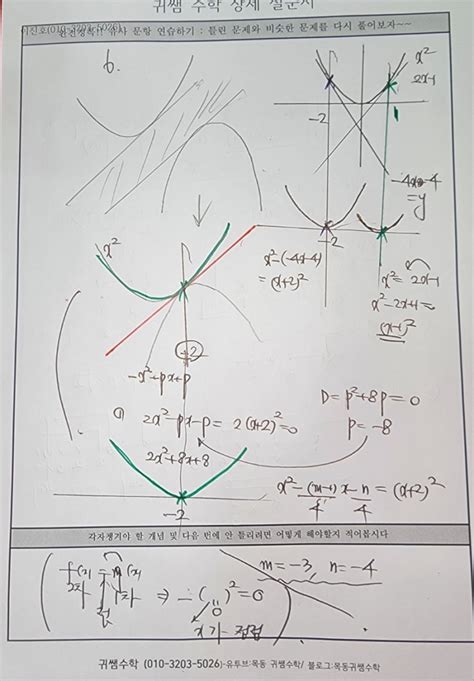 귀쌤 수학 상세 설문지
이진호(010-3203-5026)
완전정복!! 유사 문항 연습하기 : 틀린 문제와 비슷한 문제를 다시 풀어보자~~
6.
x²
2x-1
-2
1
-4x-4
=y
x²
-2
x²-(-4x-4)
=(x+2)²
x²= 2x-1
x²-2x+1=
(x-1)²
-2
-x²+px+p
2x²-px-p= 2(x+2)²=0
D= p²+8p=0
p=-8
2x²+8x+8
x²-(m-1)/4 x-n/4 =(x+2)²
-2
각자챙겨야 할 개념 및 다음 번에 안 틀리려면 어떻게 해야할지 적어봅시다
m=-3, n=-4
⇒ -( )²=0
귀쌤수학 (010-3203-5026)-유투브:목동 귀쌤수학/ 블로그:목동귀쌤수학